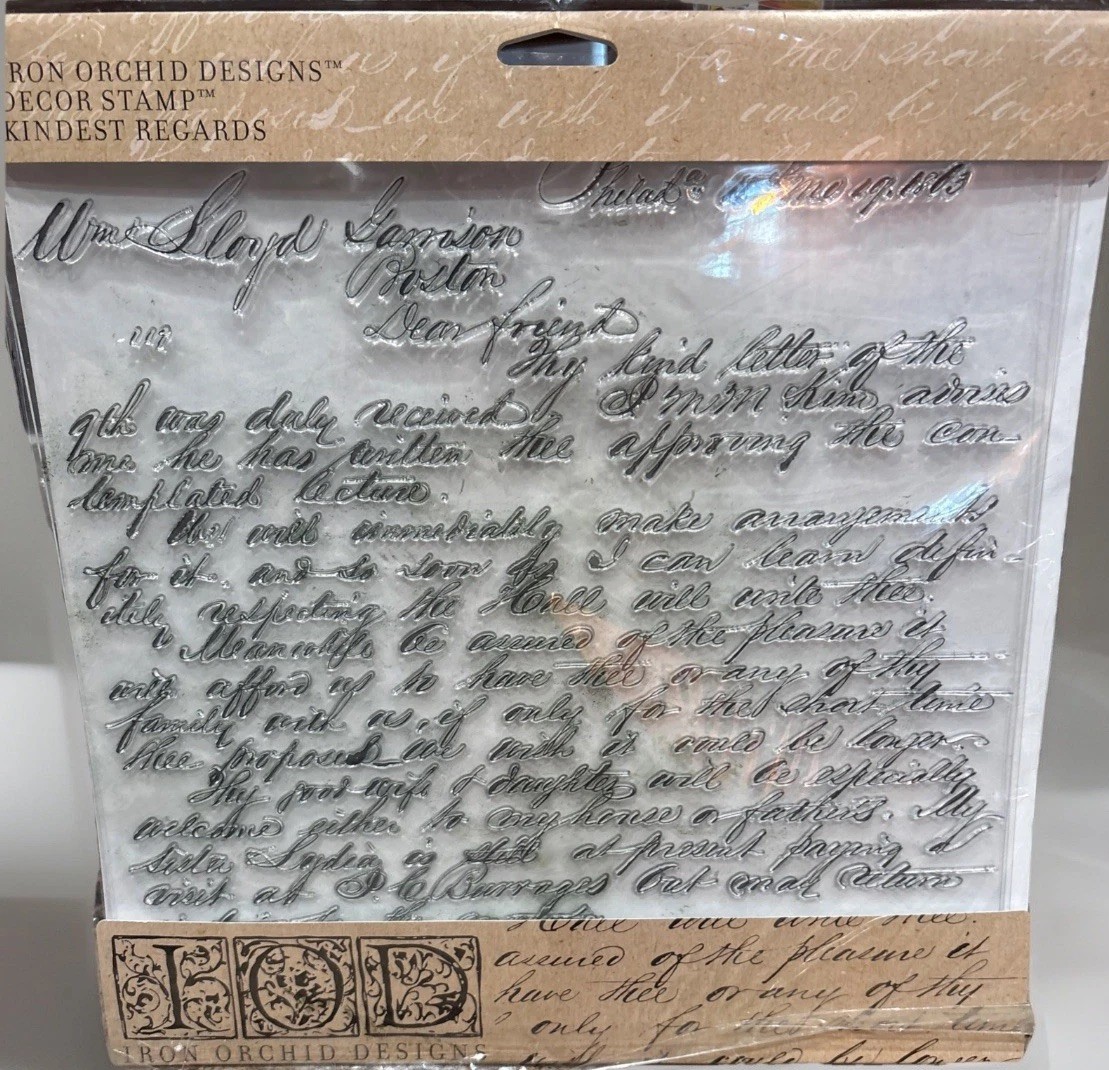 IRON ORCHID DESIGNS™
DECOR STAMP™
KINDEST REGARDS
is, if for the short time
proposes we wish it could be longer
Philada 19. 1863
Wm. Lloyd Garrison
Boston
Dear friend
Thy kind letter of the
9th was duly received. J M M Kim advises
me he has written thee approving the con-
templated lecture.
We will immediately make arrangements
for it, and so soon as I can learn defin-
itely respecting the Hall will write thee.
Meanwhile be assured of the pleasure it
will afford us to have thee or any of thy
family with us, if only for the short time
thee proposes we wish it could be longer.
Thy good wife & daughter will be especially
welcome either to my house or father's. My
sister Lydia is still at present paying a
visit at J C Burrages but may return
Hall will write thee.
assured of the pleasure it
have thee or any of thy
only for the short time
it could be longer
IOD
IRON ORCHID DESIGNS